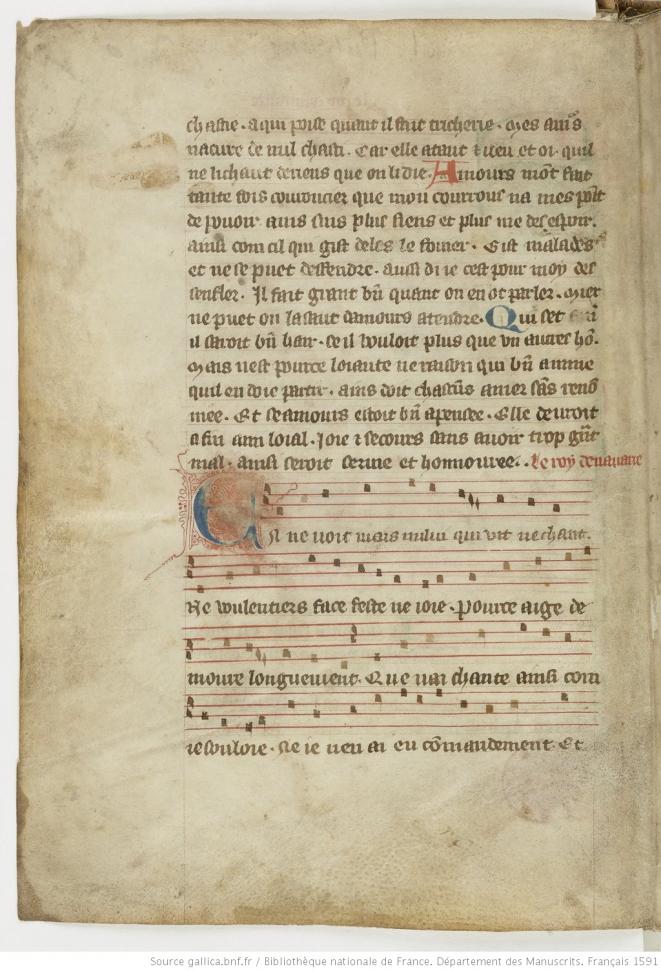 chastie. a qui poise quant il fait tricherie. Mes amis
nature de mil chasti. Car elle ataut ⁊ ueu et oi. quil
ne li chaut de riens que on li die. Amours mōt fait
tante fois couroucier que mon courrous na mes point
de pouoir ains suis plus siens et plus me desespoir.
ainsi com cil qui gist deles le fouier. Et est malades
et ne se puet deffendre. aussi di ie cest pour moy des
Il fait grant bñ quant on en ot parler. Mer
ne puet on la saut damours atendre. Qui set
il sauroit bñ hair. se il uouloit plus que vn autres hō.
Mais nest pource loiaute ne raison qui bñ aimme
quil en doie partir. ains doit chascūs amer sās renō
mee. Et se amours estoit bñ apensee. Elle deuroit
a fin ami loial. Joie ⁊ secours sans auoir trop gñt
mal. ainsi seroit seruie et honnouree. .le roy de nauarre
ne voit mais nului qui rit ne chant.
Ne voulentiers face feste ne ioie. Pource ai ge de
moure longuement. Que nai chante ainsi com
ie souloie. Ne ie nen ai eu cōmandement Et
Source gallica.bnf.fr / Bibliothèque nationale de France. Département des Manuscrits. Français 1591